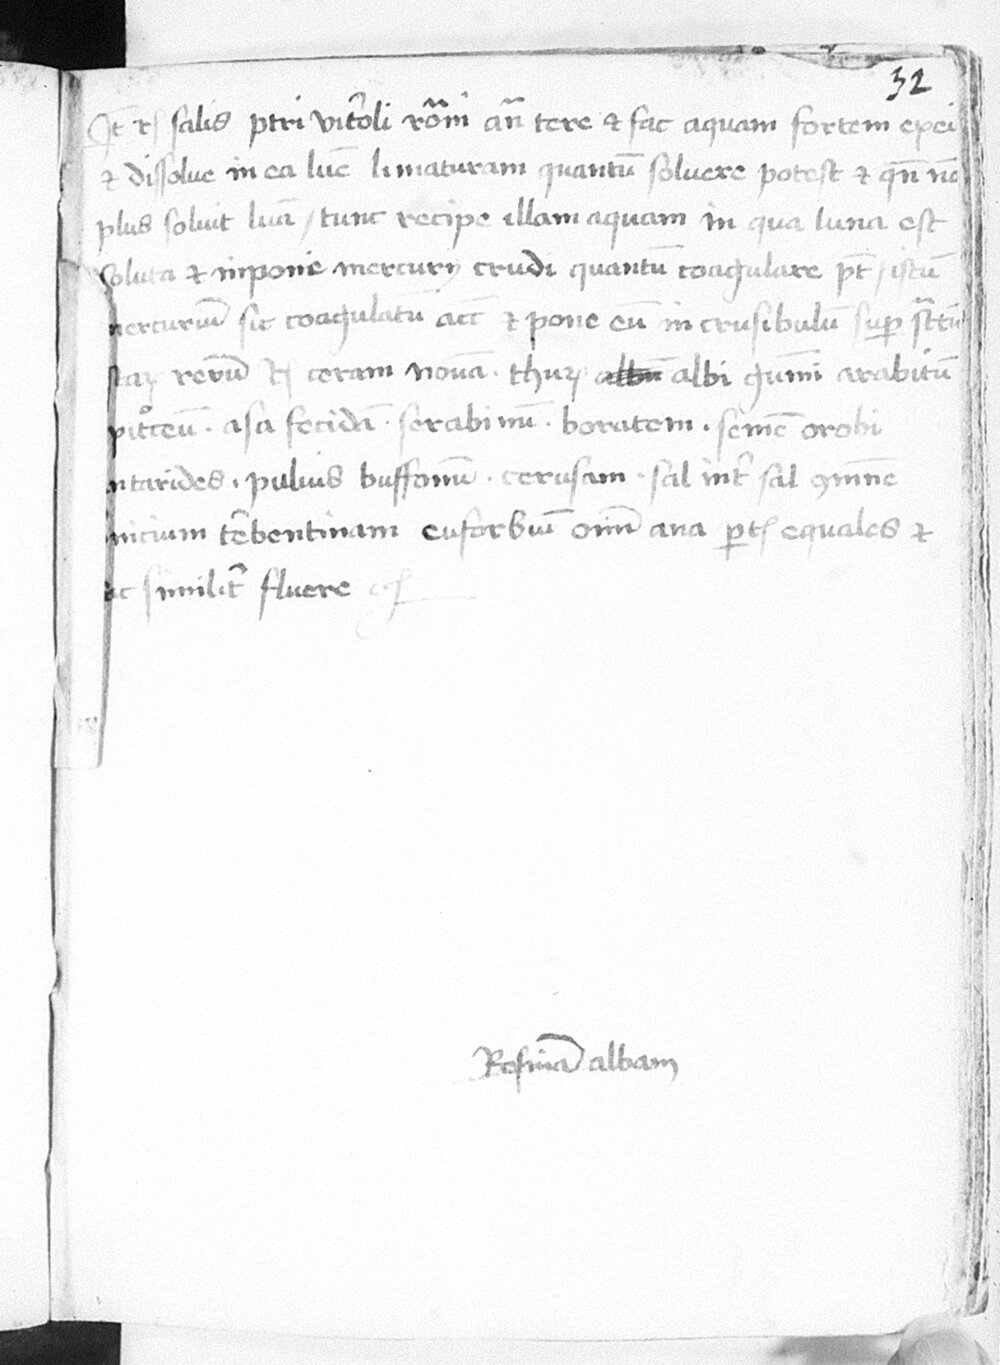 32
Itē R salis ptri vit'oli rōm̄i an̄ tere ⁊ fac aquam fortem ex ei
⁊ dissolue in ea lūe limaturam quantū soluere potest ⁊ qn̄ nō
plus soluit lunā / tunc recipe illam aquam in qua luna est
soluta ⁊ inpone mercurij crudi quantū coagulare pt̄ / istū
mercuriū sic coagulatū acc̄ ⁊ pone eū in crusibulū sup
rerū R ceram nouā · thur albi gum̄i arabicū
asa fetidā · serabinū · boratem · semē orobi
ntarides · puluis buffonū · cerusam · sal int' sal 9mūne
nicium t'bentinam euforbiū om̄i ana ptes equales ⁊
ac similit' fluere
Rosinā albam